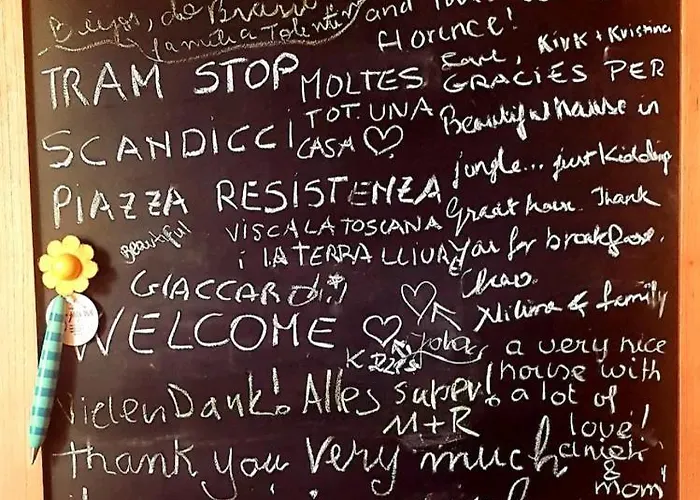 Florence!
Love, Kirk + Kristina
TRAM STOP
SCANDICCI
PIAZZA RESISTENZA
Beautiful
GIACCARDI!
WELCOME
MOLTES GRACIES PER
TOT. UNA
CASA ♡
VISCA LA TOSCANA
i LA TERRA LLIURE
Beautiful house in
jungle... just kidding
Great house. Thank
you for breakfast.
Chao.
& family
a very nice
house with
a lot of
love!
&
mom
Vielen Dank! Alles super!
M+R
thank you very much